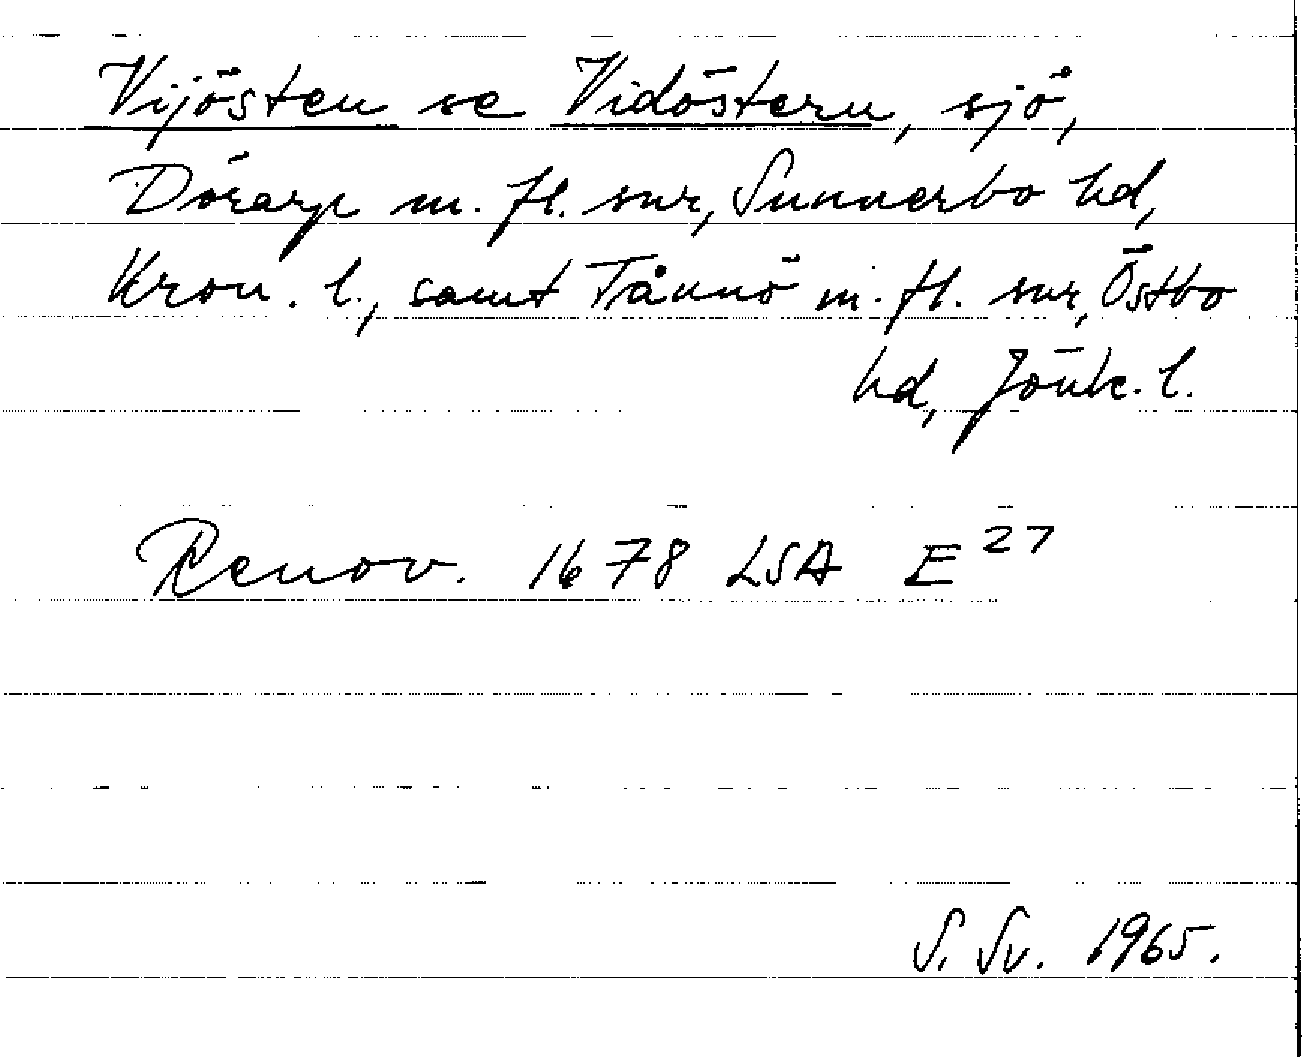 Vijösten se Vidöstern, sjö,
Dörarp m. fl. snr, Sunnerbo hd,
Kron. l., samt Tånnö m. fl. snr, Östbo
hd, Jönk. l.
Renov. 1678 LSA E²⁷
S. Sv. 1965.